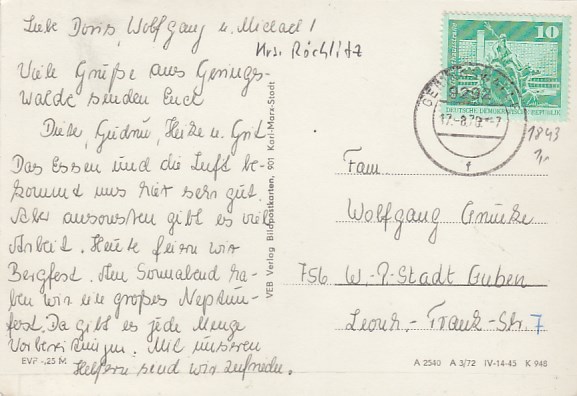 Liebe Doris, Wolfgang u. Michael!
Krs. Rochlitz
Viele Grüße aus Gerings-
walde senden Euch
Dieter, Gudrun, Heike u. Grit
Das Essen und die Luft be-
kommt uns hier sehr gut.
Aber ansonsten gibt es viel
Arbeit. Heute feiern wir
Bergfest. Am Sonnabend ha-
ben wir ein großes Neptun-
fest. Da gibt es jede Menge
Vorbereitungen. Mit unseren
Helfern send wir zufrieden.
EVP -,25 M
VEB Verlag Bildpostkarten, 901 Karl-Marx-Stadt
10
DEUTSCHE DEMOKRATISCHE REPUBLIK
9292
17.-8.79-7
f
1843
Fam.
Wolfgang
756 W.-P.-Stadt Guben
Leonh.-Frank-Str. 7
A 2540 A 3/72 IV-14-45 K 948